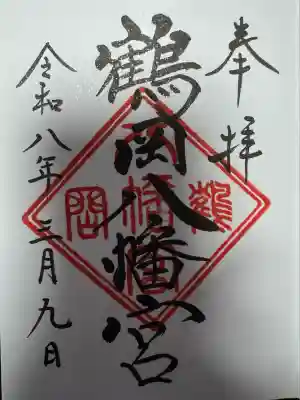 奉拝
鶴岡八幡宮
令和八年三月九日
鶴
八幡宮
岡